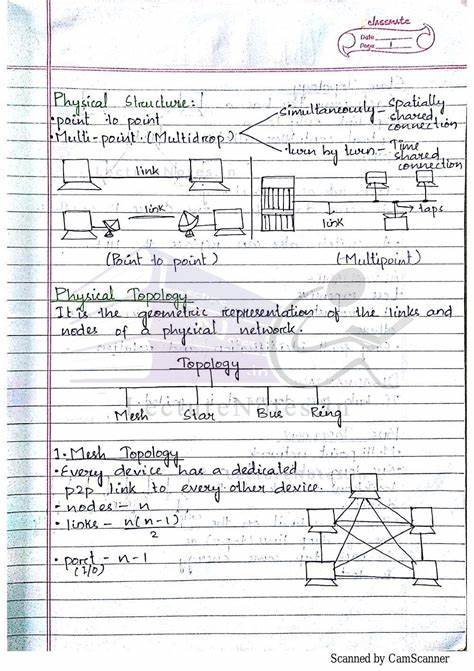 classmate
Date
Page 1
Physical Structure:
• point to point
• Multi-point (Multidrop)
simultaneously - spatially shared connection
turn by turn - Time shared connection
link
link
link
taps
(Point to point)
(Multipoint)
Physical Topology
It is the geometric representation of the links and
nodes of a physical network.
Topology
Mesh Star Bus Ring
LectureNotes.in
1. Mesh Topology
• Every device has a dedicated
p2p link to every other device.
• nodes - n
• links - n(n-1)
2
• port - n-1
(I/O)
Scanned by CamScanner